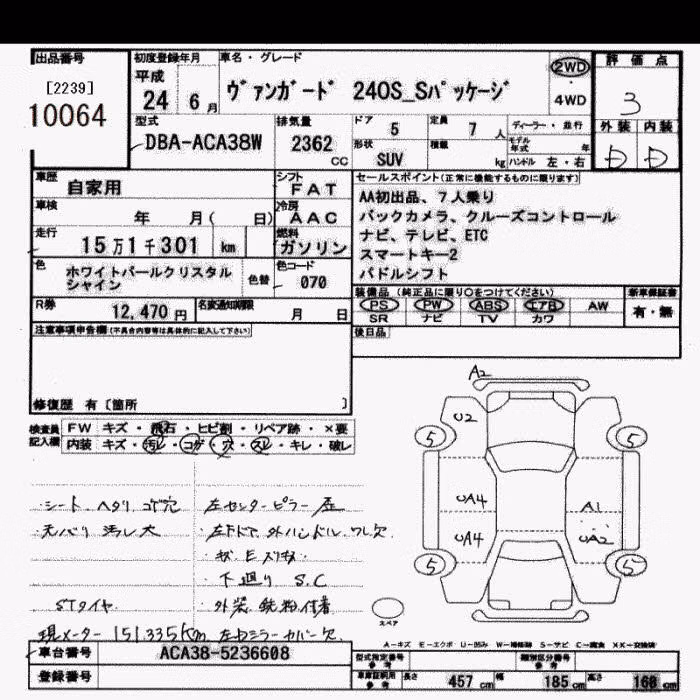 出品番号
[2239]
10064
初度登録年月
平成
24 6月
車名・グレード
ヴァンガード 240S_Sパッケージ
2WD
・
4WD
評価点
3
外装 内装
D D
型式
DBA-ACA38W
排気量
2362
cc
ドア
5
定員
7 人
形状
SUV
積載
kg
ディーラー・並行
モデル年式 年
ハンドル 左・右
車歴
自家用
シフト
FAT
車検
年 月( 日)
冷房
AAC
走行
15万1千301 km
燃料
ガソリン
色
ホワイトパールクリスタル
シャイン
色替
色コード
070
R券
12,470 円
名変通知期限
月 日
セールスポイント(正常に機能するものに限ります)
AA初出品、7人乗り
バックカメラ、クルーズコントロール
ナビ、テレビ、ETC
スマートキー2
パドルシフト
装備品 (純正品に限り〇をつけてください)
PS PW ABS エアB AW
SR ナビ TV カワ
新車保証書
有・無
後日品
注意事項申告欄(不具合内容等は具体的に記入して下さい)
修復歴 有[箇所 ]
検査員
記入欄
FW キズ・飛石・ヒビ割・リペア跡・×要
内装 キズ・汚レ・コゲ・穴・スレ・キレ・破レ
・シート ヘタリ コゲ穴
・天バリ 汚レ大
STタイヤ
現メーター 151,335Km
左センターピラー 歪
・左Fドア 外ハンドル ワレ欠
・下廻り S.C
・外装 鉄粉付着
左ドアミラーカバー欠
A2
U2
5 5
UA4 A1
UA4 UA2
5 5
スペア
A-キズ E-エクボ U-凹み W-補修跡 S-サビ C-腐食 XX-交換済
車台番号
ACA38-5236608
登録番号
型式指定番号
参考
類別区分番号
参考
車庫証明用
参考
長さ 457 cm 幅 185 cm 高さ 168 cm